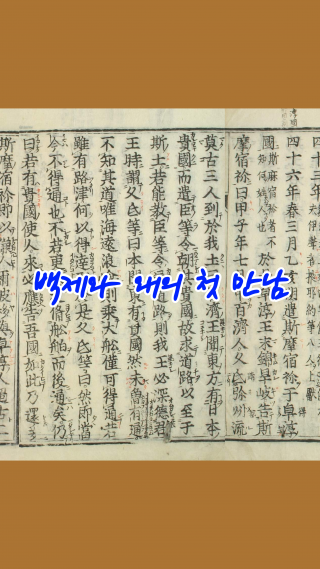 백제와 왜의 첫 만남
四十三年
四十六年春三月乙亥朔遣斯摩宿祢于卓淳
國斯麻宿祢者不知何姓人也 王末錦旱岐告斯
摩宿祢曰甲子年七月 百濟人久氐弥州流
莫古三人到於我土 百濟 聞東方有日本
貴國而遣臣等令朝 貴國故求道路以至于
斯土若能教臣等令 道路則我王必深德君
王時謂久氐等曰本聞東有貴國然未曾有通
不知其道唯海遠浪 則乘大船僅可得通若
雖有路津何以得 是久氐等曰然即當
今不得通也不若更 備船舶而後通矣仍
曰若有貴國使人來必應告吾國如此乃還爰
斯摩宿祢即以傔人爾波移 卓淳人過古二